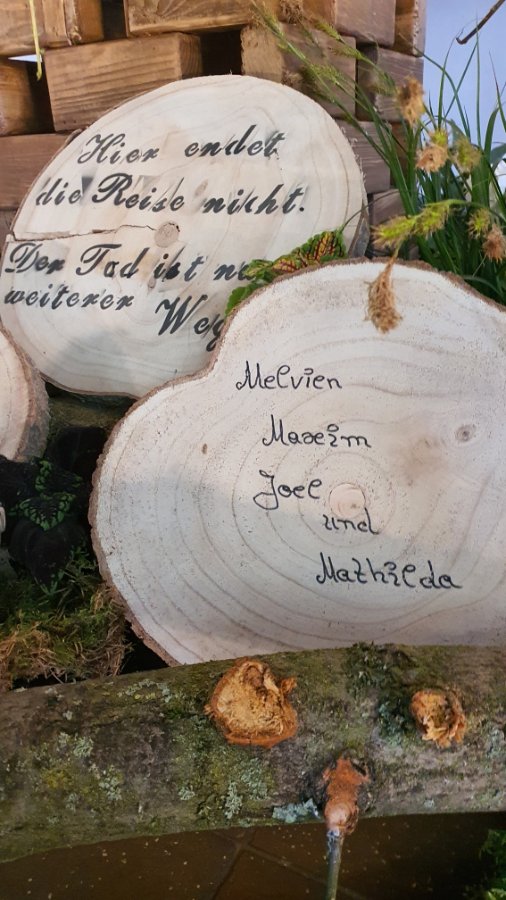 Hier endet
die Reise nicht.
Der Tod ist
weiterer Weg
Melvien
Maxim
Joel
und
Mathilda